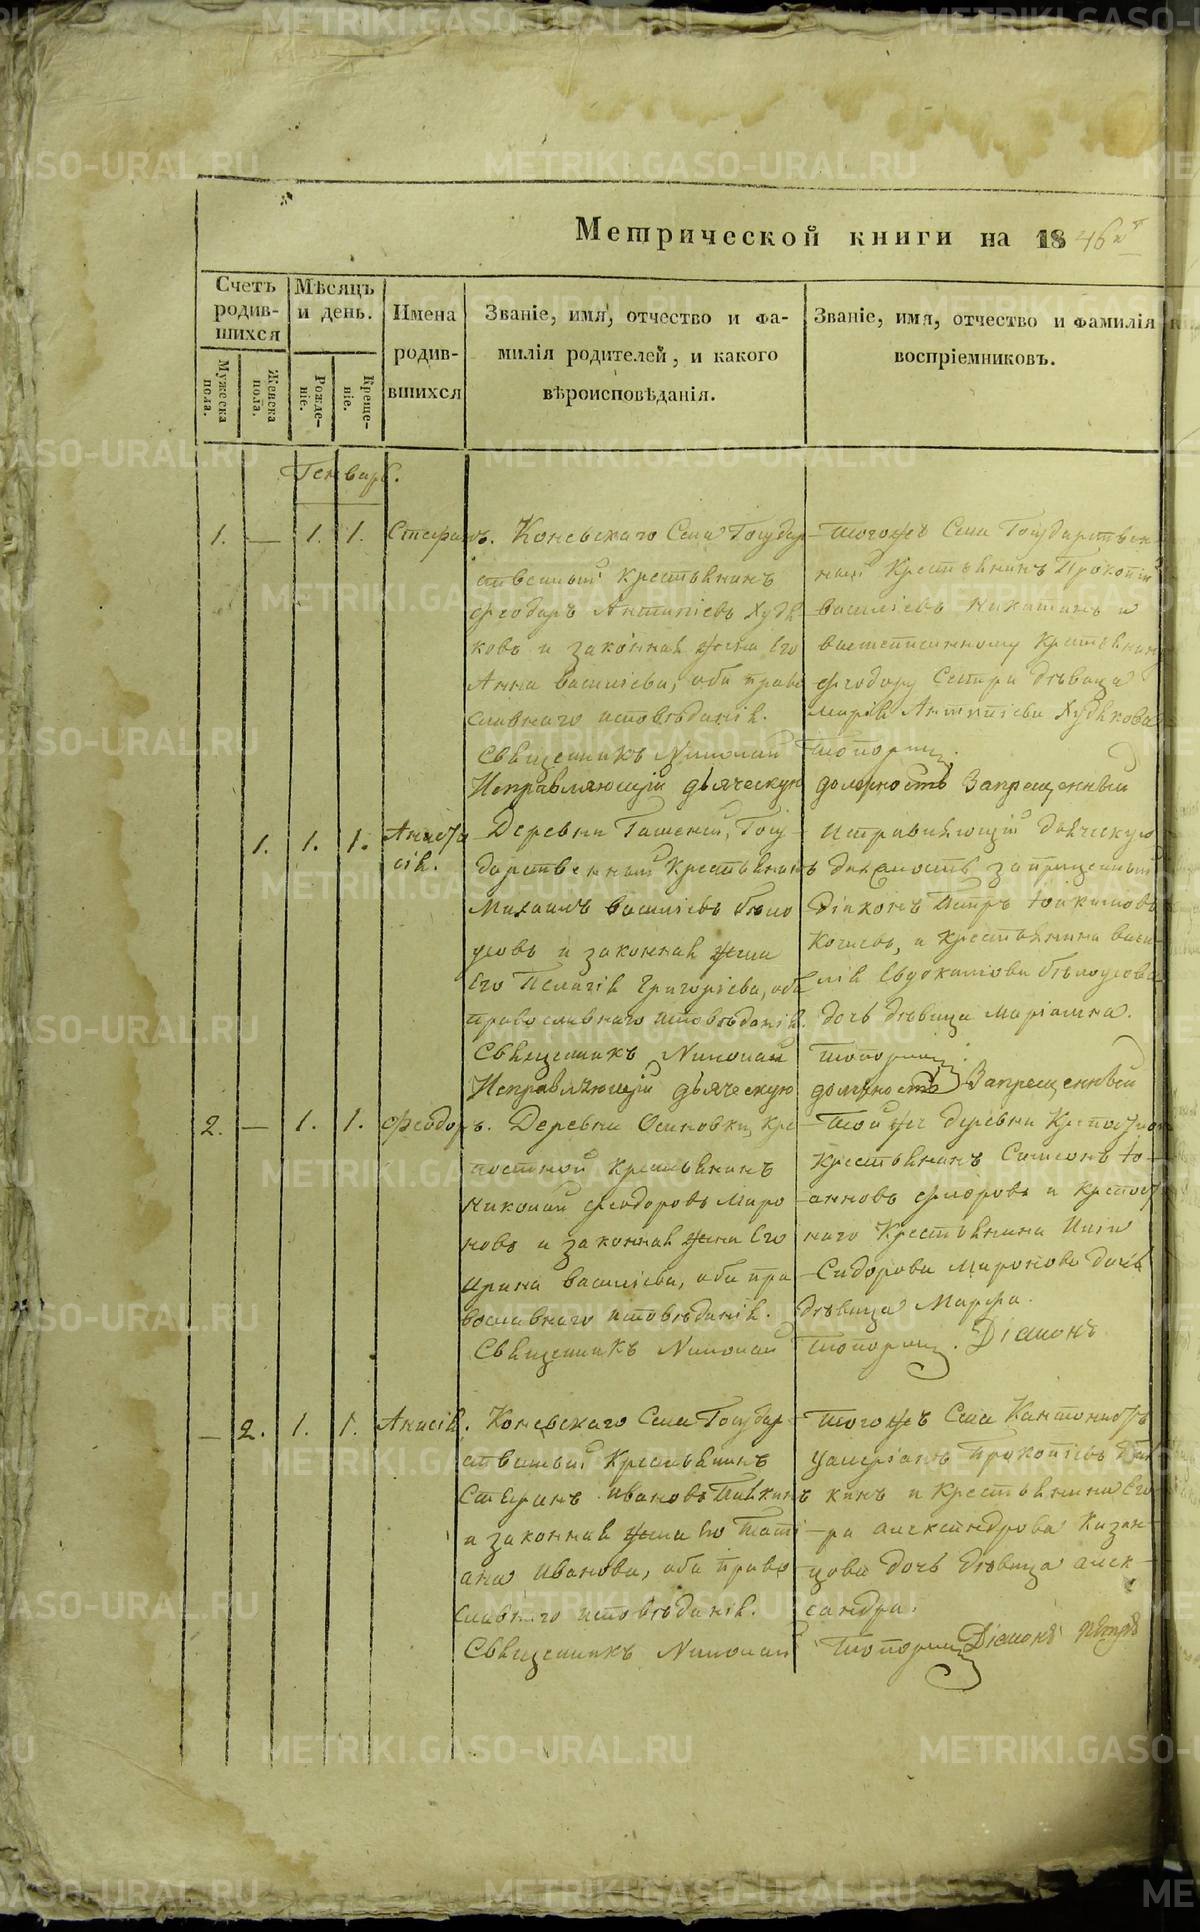 Метрической книги на 1846й
Счетъ родив-шихся
Мѣсяцъ и день.
Имена родив-вшихся
Званіе, имя, отчество и фа-
милія родителей, и какого
вѣроисповѣданія.
Званіе, имя, отчество и фамилія
воспріемниковъ.
Мужеска пола.
Женска пола.
Рожде-ніе.
Креще-ніе.
Генварь.
1. — 1. 1. Стефанъ.
Коневскаго Села Государ
ственный крестьянинъ
Феодоръ Антипіевъ Худя
ковъ и законная жена Его
Анна Василіева, оба право
славнаго исповѣданія.
Священникъ Николай
Исправляющій дьяческую
тогожъ Села Государствен
ный Крестьянинъ Прокопій
Василіевъ и
вышеписанному Крестьянину
Феодору Сестра дѣвица
Марія Антипіева Худякова
Топорищ.
должность Запрещенный
1. 1. 1. Анаста
сія.
Деревни Гашеней, Госу-
дарственный Крестьянинъ
Михаилъ Василіевъ Бѣло
усовъ и законная жена
Его Пелагія Григоріева, оба
православнаго исповѣданія.
Священникъ Николай
Исправляющій дьяческую
Исправляющій дьяческую
должность запрещенный
Діяконъ Петръ Іоакимовъ
Кочневъ, и крестьянина Васи-
лія Евдокимова Бѣлоусова
дочь дѣвица Маріамна.
Топорищ.
должность Запрещенный
2. — 1. 1. Феодоръ.
Деревни Осиновки, Кре
постной крестьянинъ
Николай Феодоровъ Миро
новъ и законная жена Его
Ирина Василіева, оба пра
вославнаго исповѣданія.
Священникъ Николай
Той же деревни Крепостной
Крестьянинъ Симеонъ Іо-
анновъ Флоровъ и крепост
наго Крестьянина Иліи
Сидорова Миронова дочь
дѣвица Марфа.
Топорищ. Діаконъ
— 2. 1. 1. Анисія.
Коневскаго Села Государ-
ственный Крестьянинъ
Стефанъ Ивановъ
и законная жена Его Тати
ана Иванова, оба право
славнаго исповѣданія.
Священникъ Николай
Тогожъ Села Кантонистъ
Прокопіевъ
кинъ и Крестьянина Его
ра Александрова Казан-
цова дочь дѣвица Алек-
сандра.
Топорищ Діаконъ Петръ
METRIKI.GASO-URAL.RU